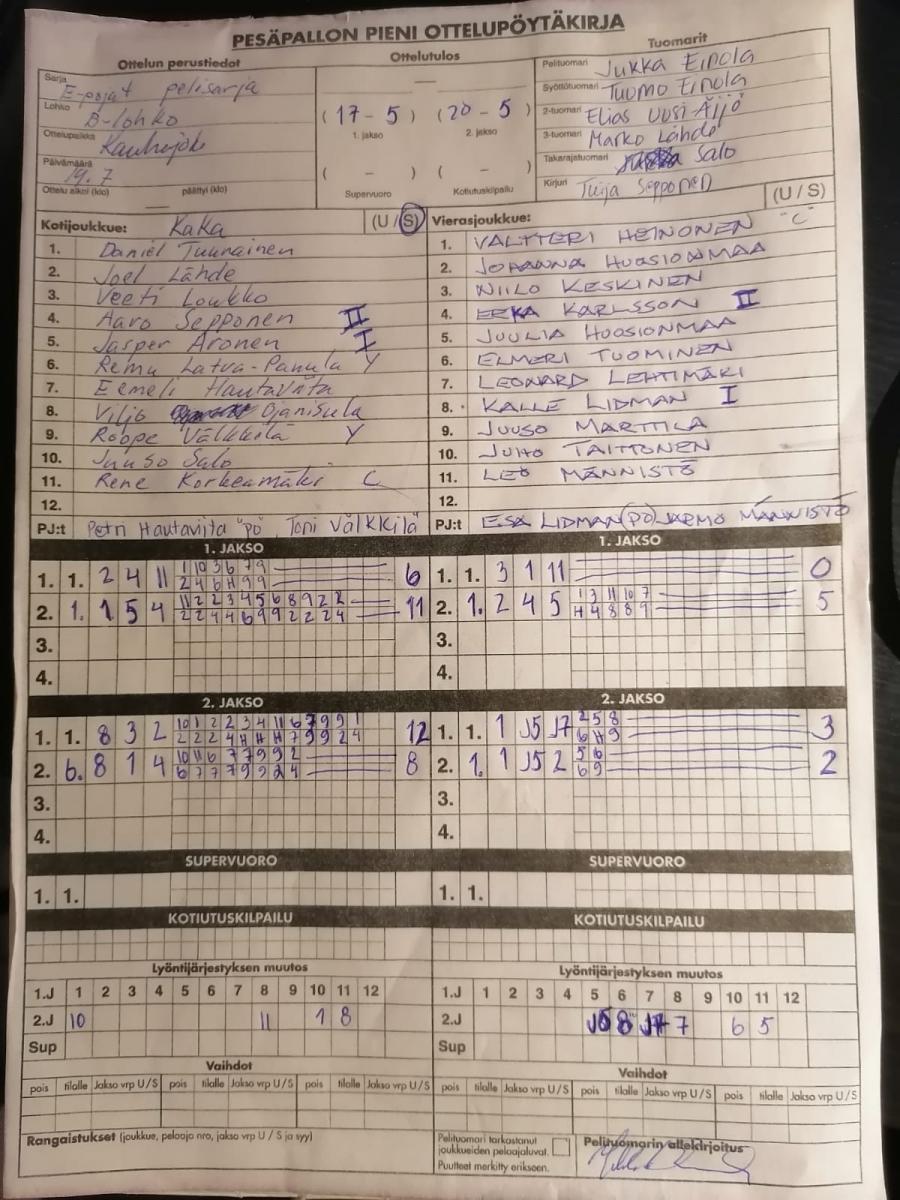 PESÄPALLON PIENI OTTELUPÖYTÄKIRJA
Ottelun perustiedot
Sarja E-pojat pelisarja
Lohko B-lohko
Ottelupaikka Kauhajoki
Päivämäärä 19.7
Ottelu alkoi (klo) — päättyi (klo)
Ottelutulos
—
(17 - 5) (20 - 5)
1. jakso 2. jakso
( - ) ( - )
Supervuoro Kotiutuskilpailu
Tuomarit
Pelituomari Jukka Einola
Syöttötuomari Tuomo Einola
2-tuomari Elias Uusi-Äijö
3-tuomari Marko Lähde
Takarajatuomari Salo
Kirjuri Tuija Sepponen
Kotijoukkue: KaKa (U / S)
1. Daniel Tuunainen
2. Joel Lähde
3. Veeti Loukko
4. Aaro Sepponen II
5. Jasper Aronen I
6. Remu Latva-Panula Y
7. Eemeli Hautaviita
8. Viljo Ojanisula
9. Roope Välkkilä Y
10. Juuso Salo
11. Rene Korkeamäki C
12.
PJ:t Petri Hautaviita "PÖ", Toni Välkkilä
Vierasjoukkue: (U / S)
1. VALTTERI HEINONEN "C"
2. JOHANNA HUOSIONMAA
3. NIILO KESKINEN
4. KARLSSON II
5. JUULIA HUOSIONMAA
6. ELMERI TUOMINEN
7. LEONARD LEHTIMÄKI
8. KALLE LIDMAN I
9. JUUSO MARTTILA
10. JUHO TAITTONEN
11. LEO MÄNNISTÖ
12.
PJ:t ESA LIDMAN (PÖ) JARMO MÄNNISTÖ
1. JAKSO
1. 1. 2 4 11 1 10 3 6 7 9 6
2 4 6 H 9 9
2. 1. 1 5 4 11 2 2 3 4 5 6 8 9 2 2 11
2 2 4 4 6 9 9 2 2 2 4
3.
4.
1. JAKSO
1. 1. 3 1 11 0
2. 1. 2 4 5 1 3 11 10 7 5
H 4 8 8 9
3.
4.
2. JAKSO
1. 1. 8 3 2 10 1 2 2 3 4 11 6 7 9 9 1 12
2 2 2 4 H H H 7 9 9 2 4
2. 6. 8 1 4 10 11 6 7 7 9 9 2 8
6 7 7 7 9 9 2 4
3.
4.
2. JAKSO
1. 1. 1 J5 J7 2 5 8 3
6 H 9
2. 1. 1 J5 2 5 6 2
6 9
3.
4.
SUPERVUORO
1. 1.
SUPERVUORO
1. 1.
KOTIUTUSKILPAILU
KOTIUTUSKILPAILU
Lyöntijärjestyksen muutos
1.J 1 2 3 4 5 6 7 8 9 10 11 12
2.J 10 11 1 8
Sup
Lyöntijärjestyksen muutos
1.J 1 2 3 4 5 6 7 8 9 10 11 12
2.J J5 8 J7 7 6 5
Sup
Vaihdot
pois tilalle Jakso vrp U / S pois tilalle Jakso vrp U / S pois tilalle Jakso vrp U / S
Vaihdot
pois tilalle Jakso vrp U / S pois tilalle Jakso vrp U / S pois tilalle Jakso vrp U / S
Rangaistukset (joukkue, pelaaja nro, jakso vrp U / S ja syy)
Pelituomari tarkastanut
joukkueiden pelaajaluvat.
Puutteet merkitty erikseen.
Pelituomarin allekirjoitus